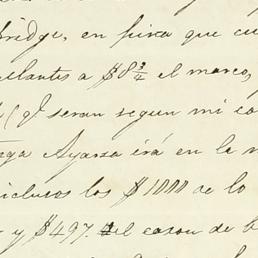 Bridge, en fixa que cu
ellantes a $8 3/4 el marco,
(ql seran segun mi co
nga Ayarza irá en la m
inclusos los $1000 de lo
y $497. del cason de b